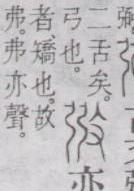 二舌矣。
弓也。
亦
者。矯也。故
弗。弗亦聲。